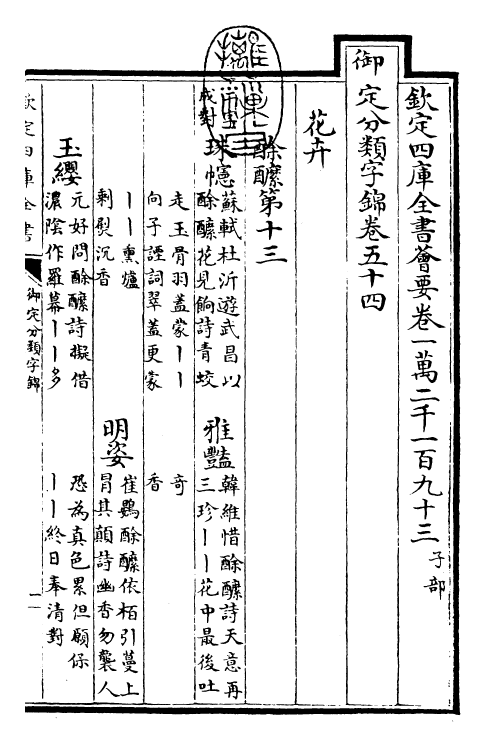 欽定四庫全書薈要卷一萬二千一百九十三 子部
御定分類字錦卷五十四
花卉
酴醿第十三
成對
珠幰 蘇軾杜沂遊武昌以
酴醿花見餉詩青蛟
走玉骨羽蓋蒙丨丨
向子諲詞翠蓋更蒙
丨丨熏爐
剩熨沉香
雅豔 韓維惜酴醿詩天意再
三珍丨丨花中最後吐
奇
香
玉纓 元好問酴醿詩擬借
濃陰作羅幕丨丨多
明姿 崔鶠酴醿依栢引蔓上
冒其顛詩幽香勿襲人
恐為真色累但願保
丨丨終日奉清對
欽定四庫全書
御定分類字錦